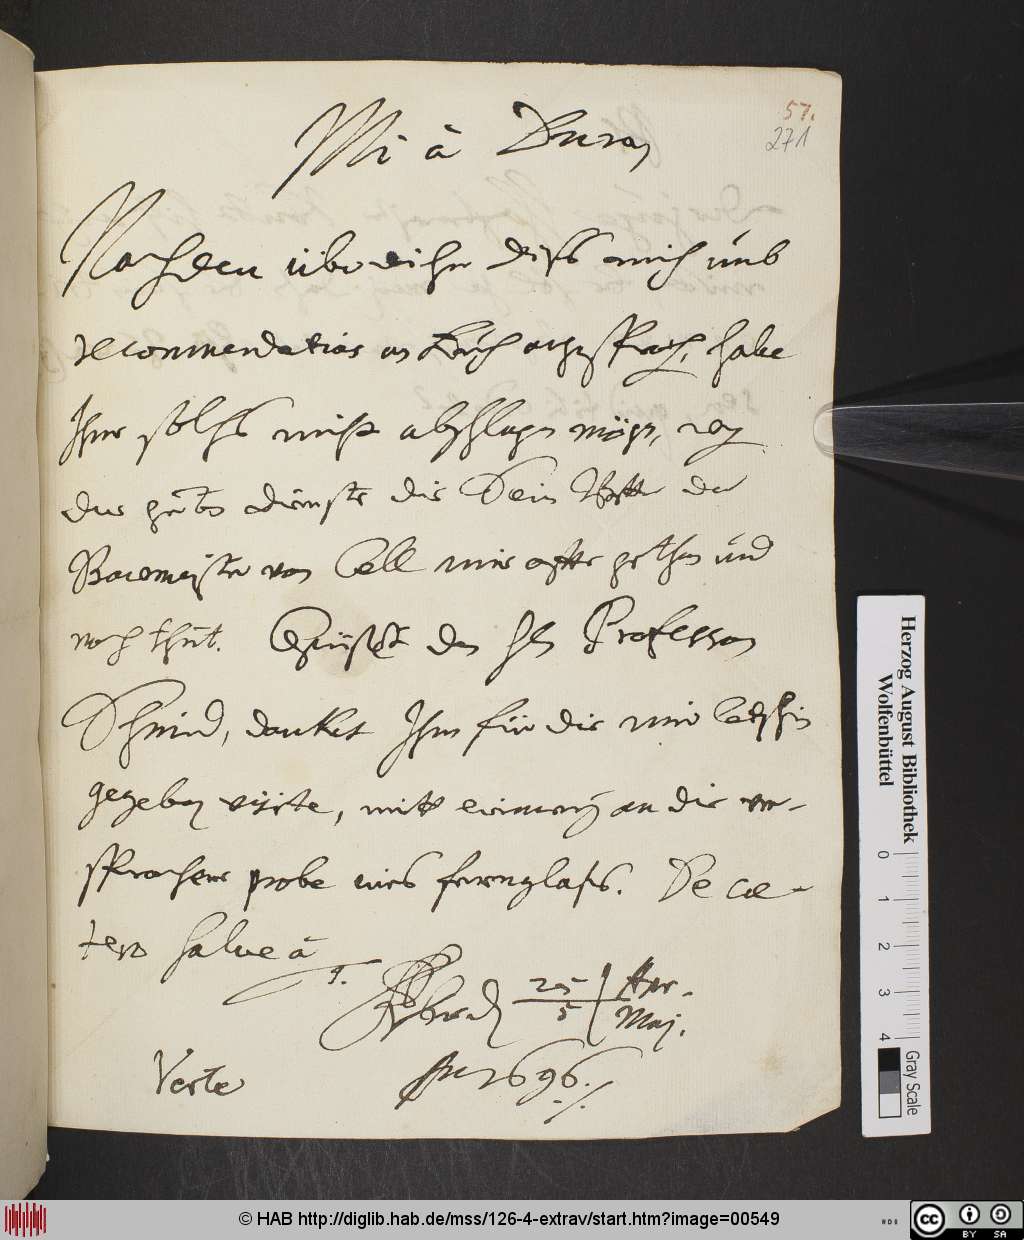 57.
271
Mi à Duran
Nachdem überbringer dises mich umb
recommendation an Euch angesprochen, habe
Ihme solches nicht abschlagen mögen, wegen
der guten dienste die Sein Vatter der
Bawmeister von Cell mir offte gethan und
noch thut. Grüsset den Hn Professoren
Schmid, dancket Ihm für die mir letzhin
gegeben visite, mitt erinnerung an die ver-
sprochene probe eines fernglases. De cæ-
tero salve à
T.
25 / 5 Apr. Maj.
Verte
An 1696.
Herzog August Bibliothek
Wolfenbüttel
0 1 2 3 4
Gray Scale
© HAB http://diglib.hab.de/mss/126-4-extrav/start.htm?image=00549
cc BY SA